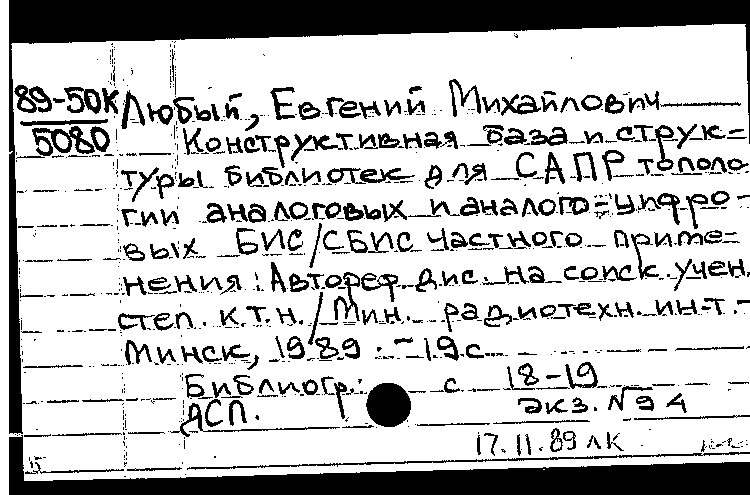 89-50К
5080
Любый, Евгений Михайлович
Конструктивная база и струк=
туры библиотек для САПР тополо
гии аналоговых и аналого=цифро-
вых БИС/СБИС частного приме=
нения: Автореф. дис. на соиск. учен.
степ. к.т.н. / Мин. радиотехн. ин-т. -
Минск, 1989. - 19 с
Библиогр.: с 18-19
ДСП. экз. №94
17.11.89 ЛК